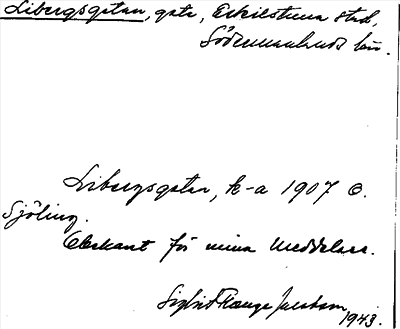 Libergsgatan, gata, Eskilstuna stad,
Södermanlands län.
Libergsgatan, k-a 1907 O.
Sjöling.
Obekant för mina meddelare.
Sigfrid Jacobson
1943.